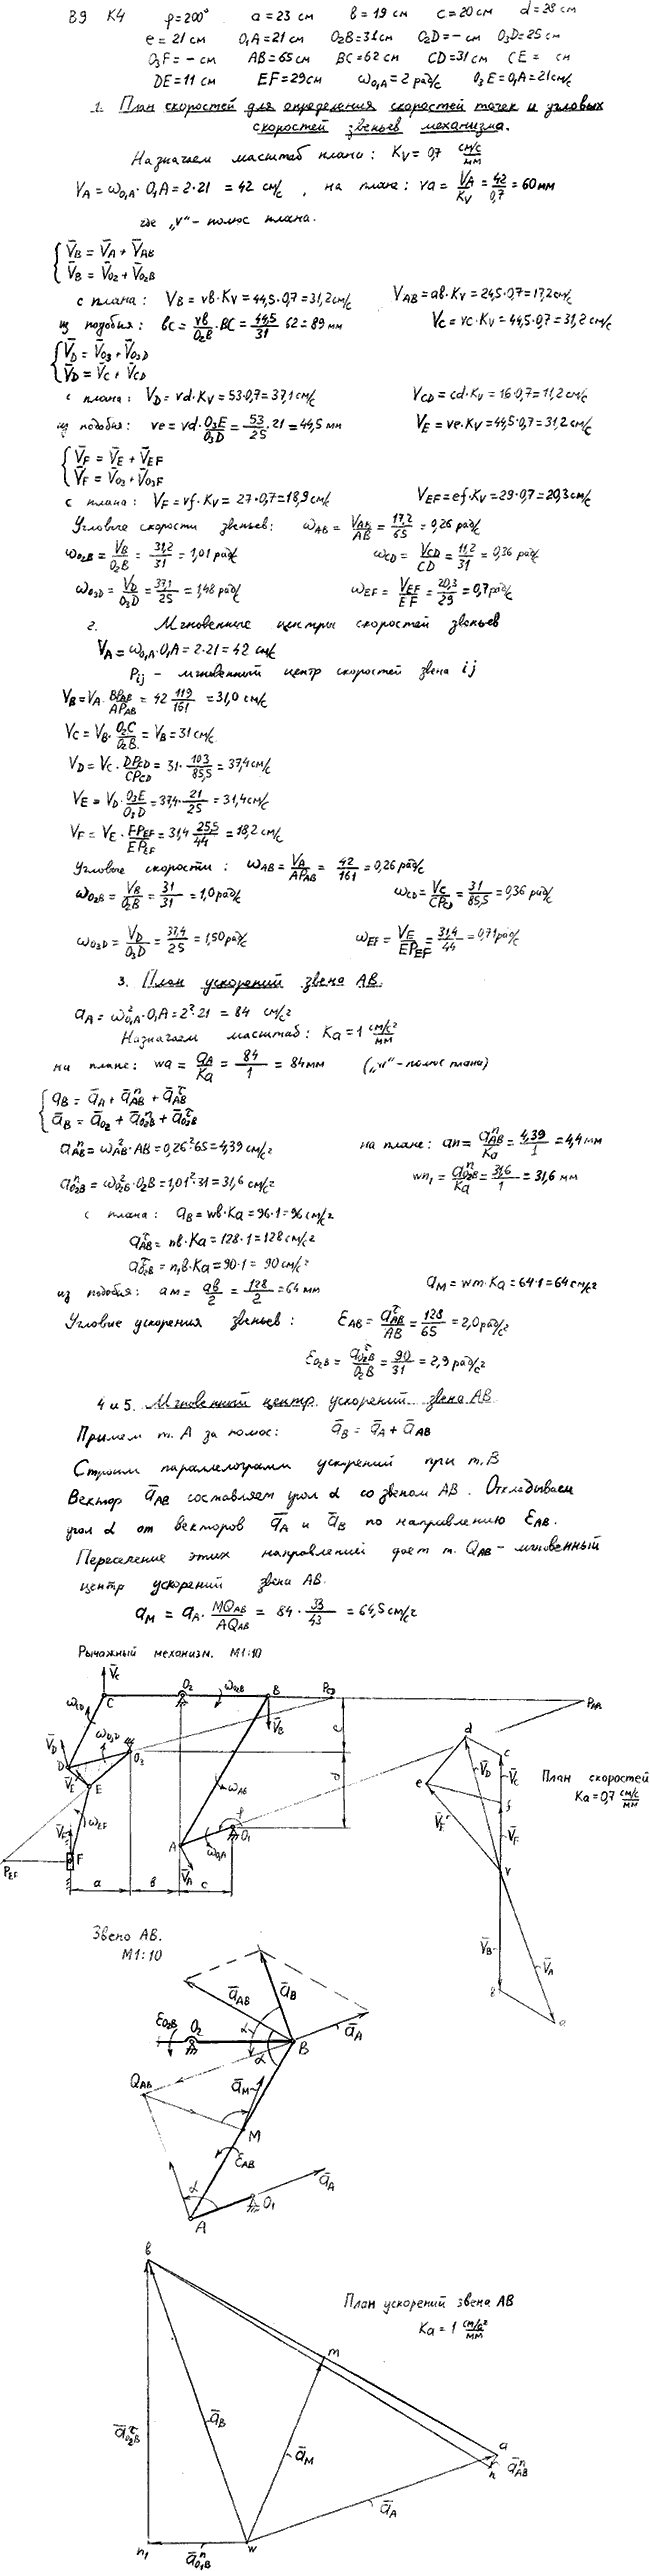 В9 К4 φ=200° a=23 см в=19 см c=20 см d=28 см
e=21 см O₁A=21 см O₂B=31 см O₂D=- см O₃D=25 см
O₃F=- см AB=65 см BC=62 см CD=31 см CE= см
DE=11 см EF=29 см ω₀₁A=2 рад/с O₃E=O₁A=21 см
1. План скоростей для определения скоростей точек и угловых
скоростей звеньев механизма.
Назначаем масштаб плана: Kv=0,7 см/с/мм
VA=ω₀₁A·O₁A=2·21=42 см/с, на плане: va=VA/Kv=42/0,7=60 мм
где „v"- полюс плана.
V̄B=V̄A+V̄AB
V̄B=V̄O2+V̄O2B
с плана: VB=vв·Kv=44,5·0,7=31,2 см/с VAB=aв·Kv=24,5·0,7=17,2 см/с
из подобия: вc=vв/O₂B·BC=44,5/31 62=89 мм Vc=vc·Kv=44,5·0,7=31,2 см/с
V̄D=V̄O3+V̄O3D
V̄D=V̄C+V̄CD
с плана: VD=vd·Kv=53·0,7=37,1 см/с VCD=cd·Kv=16·0,7=11,2 см/с
из подобия: ve=vd·O₃E/O₃D=53/25·21=44,5 мм VE=ve·Kv=44,5·0,7=31,2 см/с
V̄F=V̄E+V̄EF
V̄F=V̄O3+V̄O3F
с плана: VF=vf·Kv=27·0,7=18,9 см/с VEF=ef·Kv=29·0,7=20,3 см/с
Угловые скорости звеньев: ωAB=VAB/AB=17,2/65=0,26 рад/с
ωO2B=VB/O₂B=31,2/31=1,01 рад/с ωCD=VCD/CD=11,2/31=0,36 рад/с
ωO3D=VD/O₃D=37,1/25=1,48 рад/с ωEF=VEF/EF=20,3/29=0,7 рад/с
2. Мгновенные центры скоростей звеньев
VA=ω₀₁A·O₁A=2·21=42 см/с
Pij - мгновенный центр скоростей звена ij
VB=VA·BPAB/APAB=42 119/161=31,0 см/с
VC=VB·O₂C/O₂B=VB=31 см/с
VD=VC·DPCD/CPCD=31·103/85,5=37,4 см/с
VE=VD·O₃E/O₃D=37,4·21/25=31,4 см/с
VF=VE·FPEF/EPEF=31,4 25,5/44=18,2 см/с
Угловые скорости: ωAB=VA/APAB=42/161=0,26 рад/с
ωO2B=VB/O₂B=31/31=1,0 рад/с ωCD=VC/CPCD=31/85,5=0,36 рад/с
ωO3D=VD/O₃D=37,4/25=1,50 рад/с ωEF=VE/EPEF=31,4/44=0,71 рад/с
3. План ускорений звена AB.
aA=ω²O1A·O₁A=2²·21=84 см/с²
Назначаем масштаб: Ka=1 см/с²/мм
на плане: wa=aA/Ka=84/1=84 мм („w"-полюс плана)
āB=āA+āⁿAB+āᵗAB
āB=āO2+āⁿO2B+āᵗO2B
aⁿAB=ω²AB·AB=0,26²·65=4,39 см/с² на плане: an=aⁿAB/Ka=4,39/1=4,4 мм
aⁿO2B=ω²O2B·O₂B=1,01²·31=31,6 см/с² wn₁=aⁿO2B/Ka=31,6/1=31,6 мм
с плана: aB=wв·Ka=96·1=96 см/с²
aᵗAB=nв·Ka=128·1=128 см/с²
aᵗO2B=n₁в·Ka=90·1=90 см/с²
из подобия: aм=aв/2=128/2=64 мм aM=wm·Ka=64·1=64 см/с²
Угловые ускорения звеньев: εAB=aᵗAB/AB=128/65=2,0 рад/с²
εO2B=aᵗO2B/O₂B=90/31=2,9 рад/с²
4 и 5. Мгновенный центр ускорений звена AB
Примем т. A за полюс: āB=āA+āAB
Строим параллелограмм ускорений при т. B
Вектор āAB составляет угол α со звеном AB. Откладываем
угол α от векторов āA и āB по направлению εAB.
Пересечение этих направлений дает т. QAB - мгновенный
центр ускорений звена AB.
aM=aA·MQAB/AQAB=84·33/43=64,5 см/с²
Рычажный механизм. М1:10
V̄C
C O₂ ωO2B B PCD PAB
ωCD V̄B
V̄D ωO3D O₃ e
D V̄E E ωAB d
ωEF V̄F F A O₁ ωO1A V̄A
PEF a в c
d c e V̄D V̄C f V̄E V̄F v V̄B V̄A в a
План скоростей
Ka=0,7 см/с/мм
Звено AB.
М1:10
āAB āB āA
εO2B O₂ α α B
QAB āM M
εAB
α āA O₁
A
в
План ускорений звена AB
Ka=1 см/с²/мм
m
āᵗO2B āB āM
a n āⁿAB
āA
n₁ āⁿO2B w